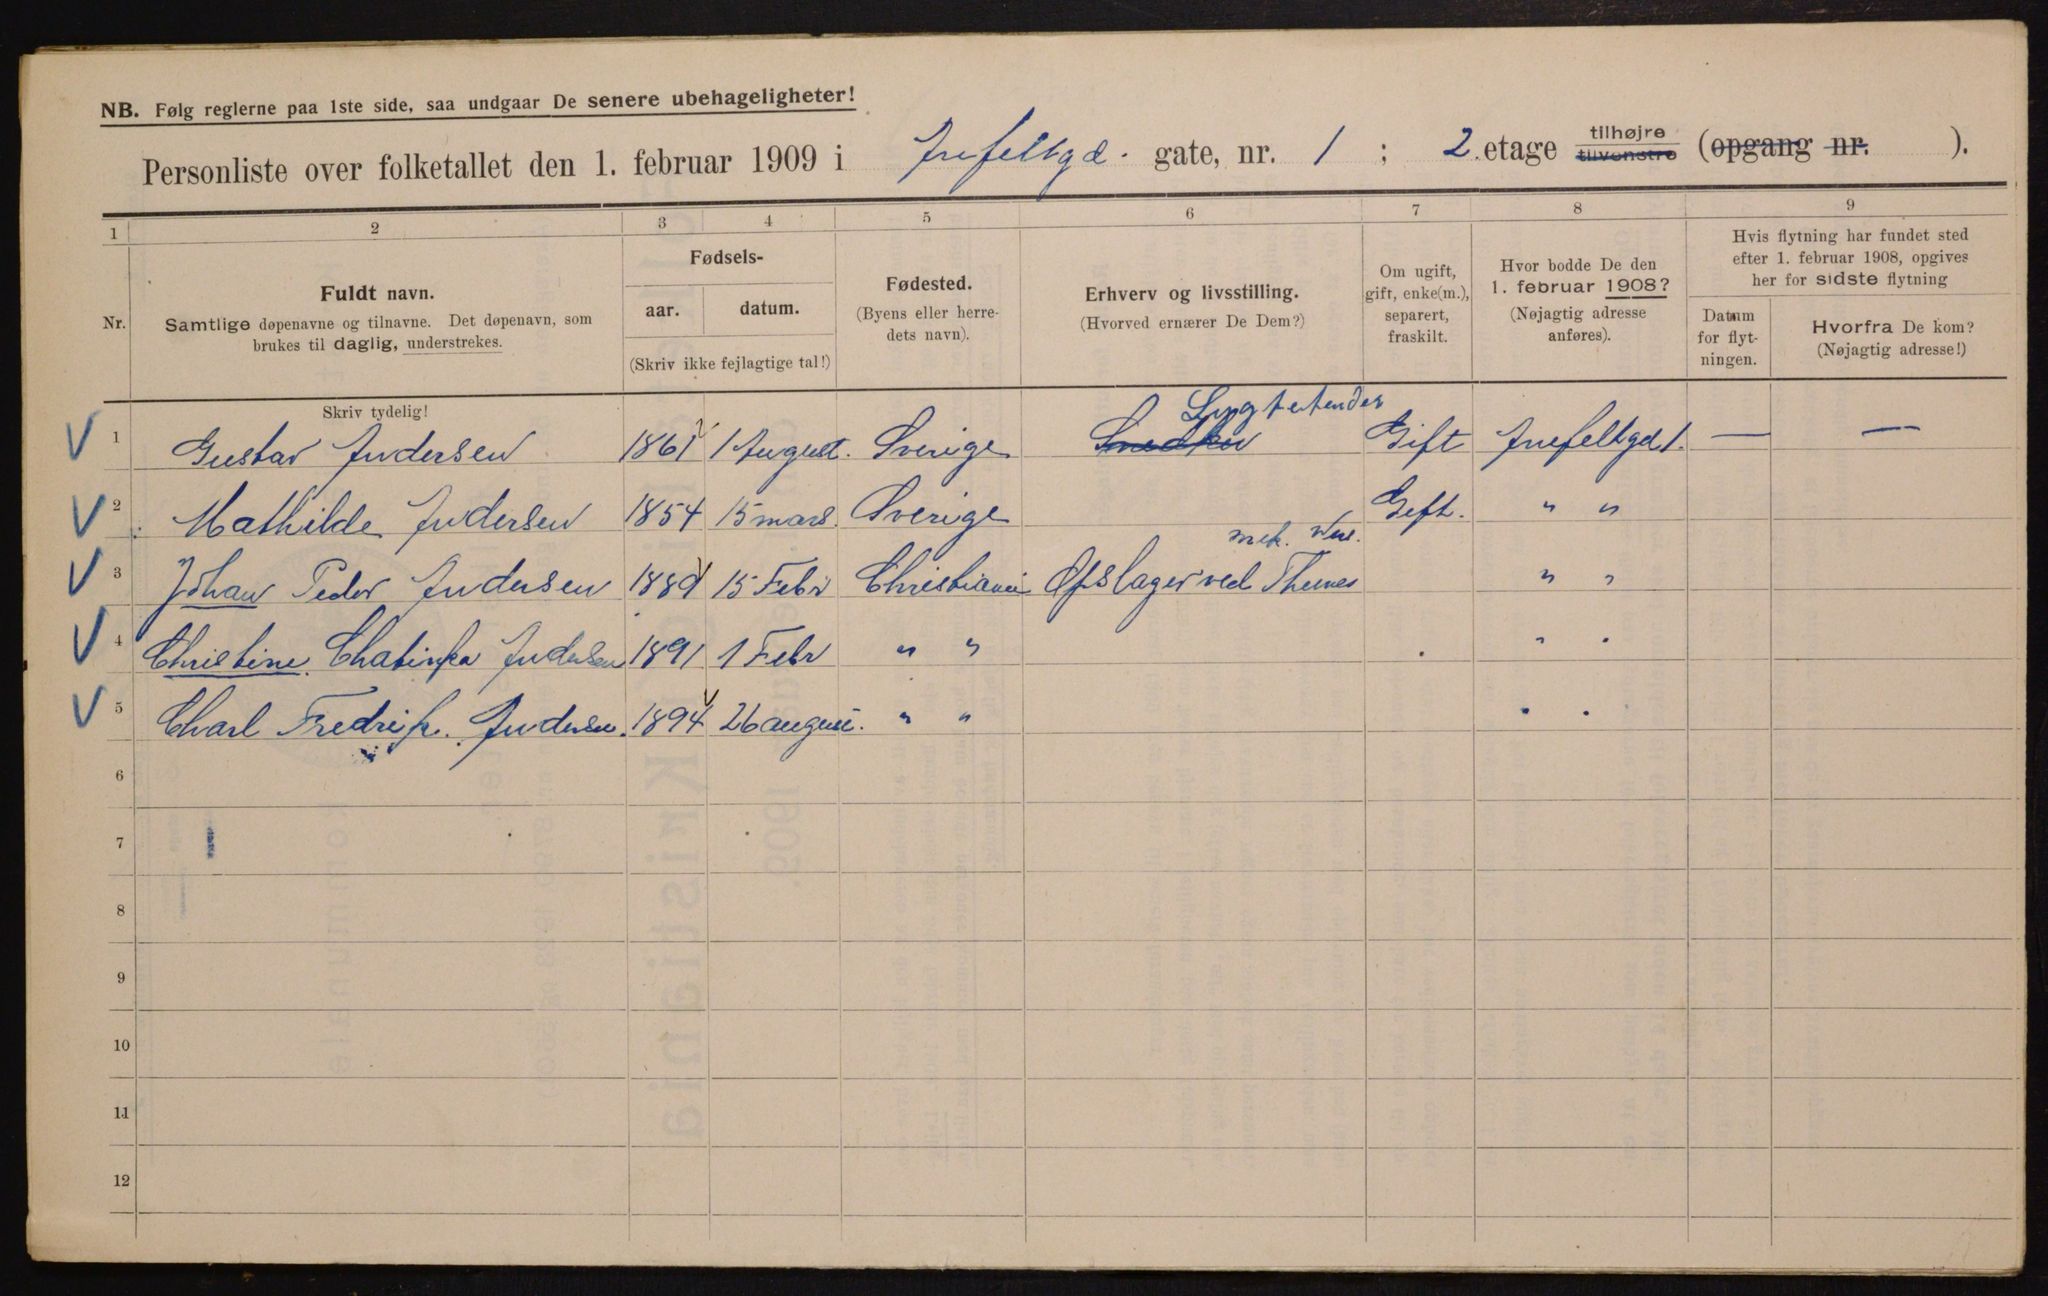 NB. Følg reglerne paa 1ste side, saa undgaar De senere ubehageligheter!
Personliste over folketallet den 1. februar 1909 i gate, nr. 1 ; 2. etage tilhøjre tilvenstre (opgang nr. ).
1 2 3 4 5 6 7 8 9
Nr.
Fuldt navn.
Samtlige døpenavne og tilnavne. Det døpenavn, som
brukes til daglig, understrekes.
Fødsels-
aar. datum.
(Skriv ikke fejlagtige tal!)
Fødested.
(Byens eller herre-
dets navn).
Erhverv og livsstilling.
(Hvorved ernærer De Dem?)
Om ugift,
gift, enke(m.),
separert,
fraskilt.
Hvor bodde De den
1. februar 1908?
(Nøjagtig adresse
anføres).
Hvis flytning har fundet sted
efter 1. februar 1908, opgives
her for sidste flytning
Datum
for flyt-
ningen.
Hvorfra De kom?
(Nøjagtig adresse!)
Skriv tydelig!
Lygtetender
1 Gustav Andersen 1861 1 August. Sverige Snedker Gift 1. — —
2 Mathilde Andersen 1854 15 mars. Sverige Gift. " "
mek. 
3 Johan Peder Andersen 1889 15 Febr Christiania Opslager ved " "
4 Christine Chatinka Andersen 1891 1 Febr " " " "
5 Charl Fredrik. Andersen. 1894 26 august. " " " "
6
7
8
9
10
11
12